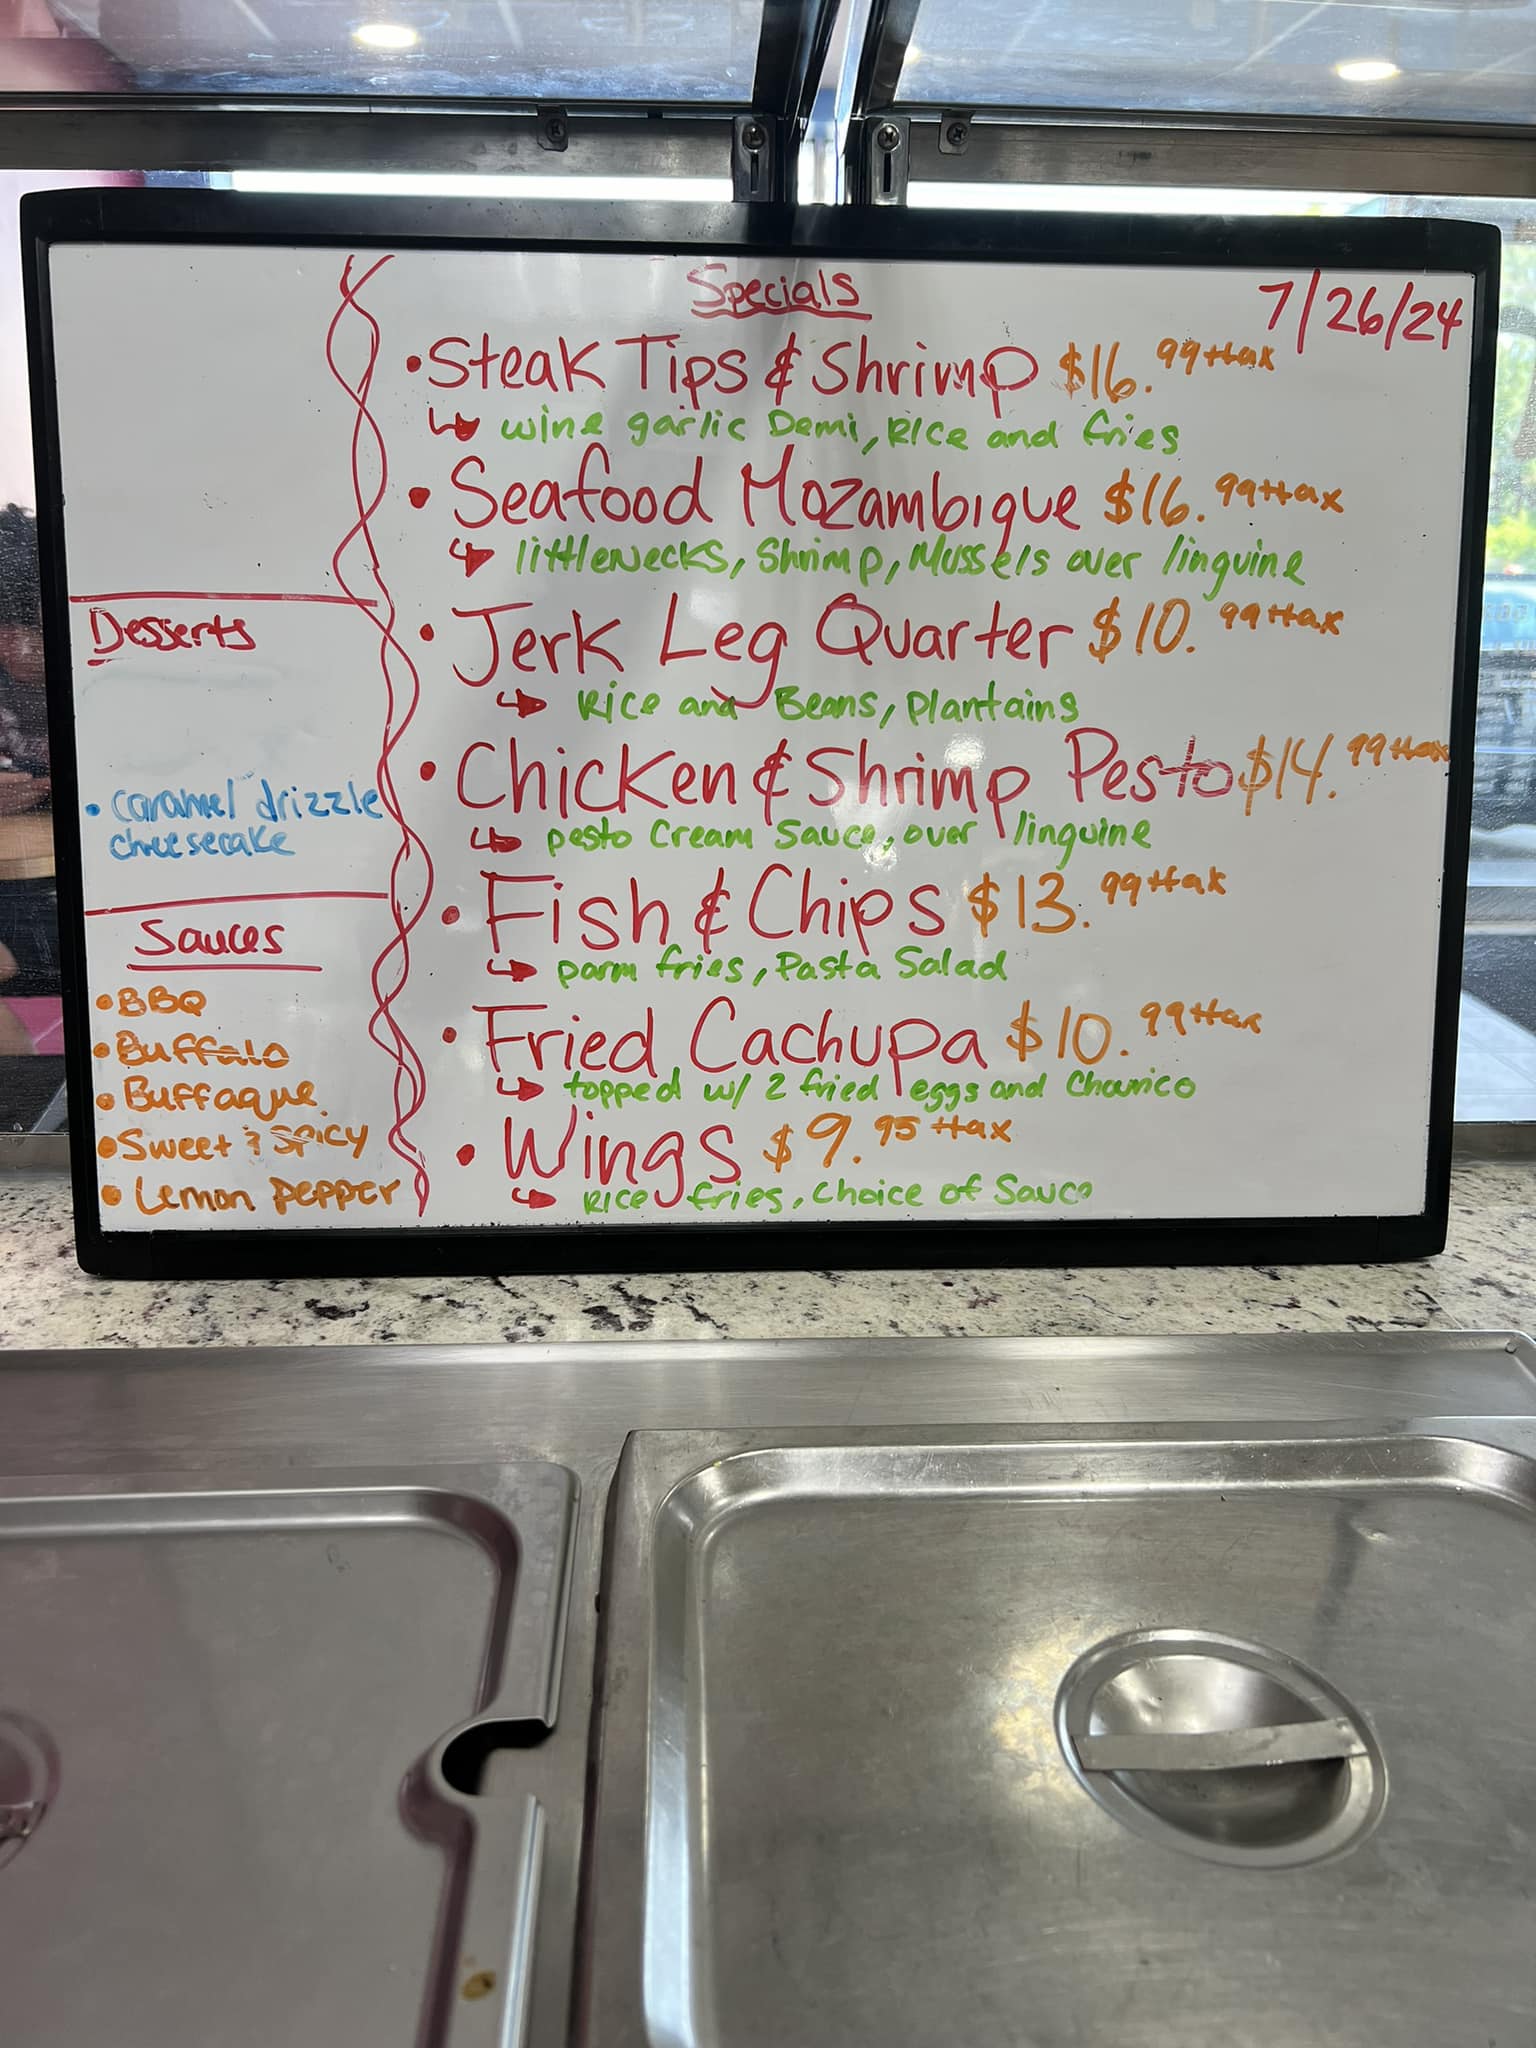 Specials
7/26/24
• Steak Tips & Shrimp $16.99+tax
wine garlic Demi, Rice and fries
• Seafood Mozambique $16.99+tax
littlenecks, Shrimp, Mussels over linguine
• Jerk Leg Quarter $10.99+tax
Rice and Beans, Plantains
• Chicken & Shrimp Pesto $14.99+tax
pesto Cream Sauce, over linguine
• Fish & Chips $13.99+tax
parm fries, Pasta Salad
• Fried Cachupa $10.99+tax
topped w/ 2 fried eggs and Chourico
• Wings $9.95+tax
Rice fries, Choice of Sauce
Desserts
• caramel drizzle
cheesecake
Sauces
• BBQ
• Buffalo
• Buffaque
• Sweet & Spicy
• Lemon pepper